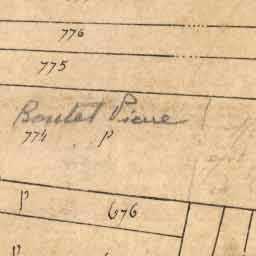 776
775
Boutet Pierre
774 p
p 676
p